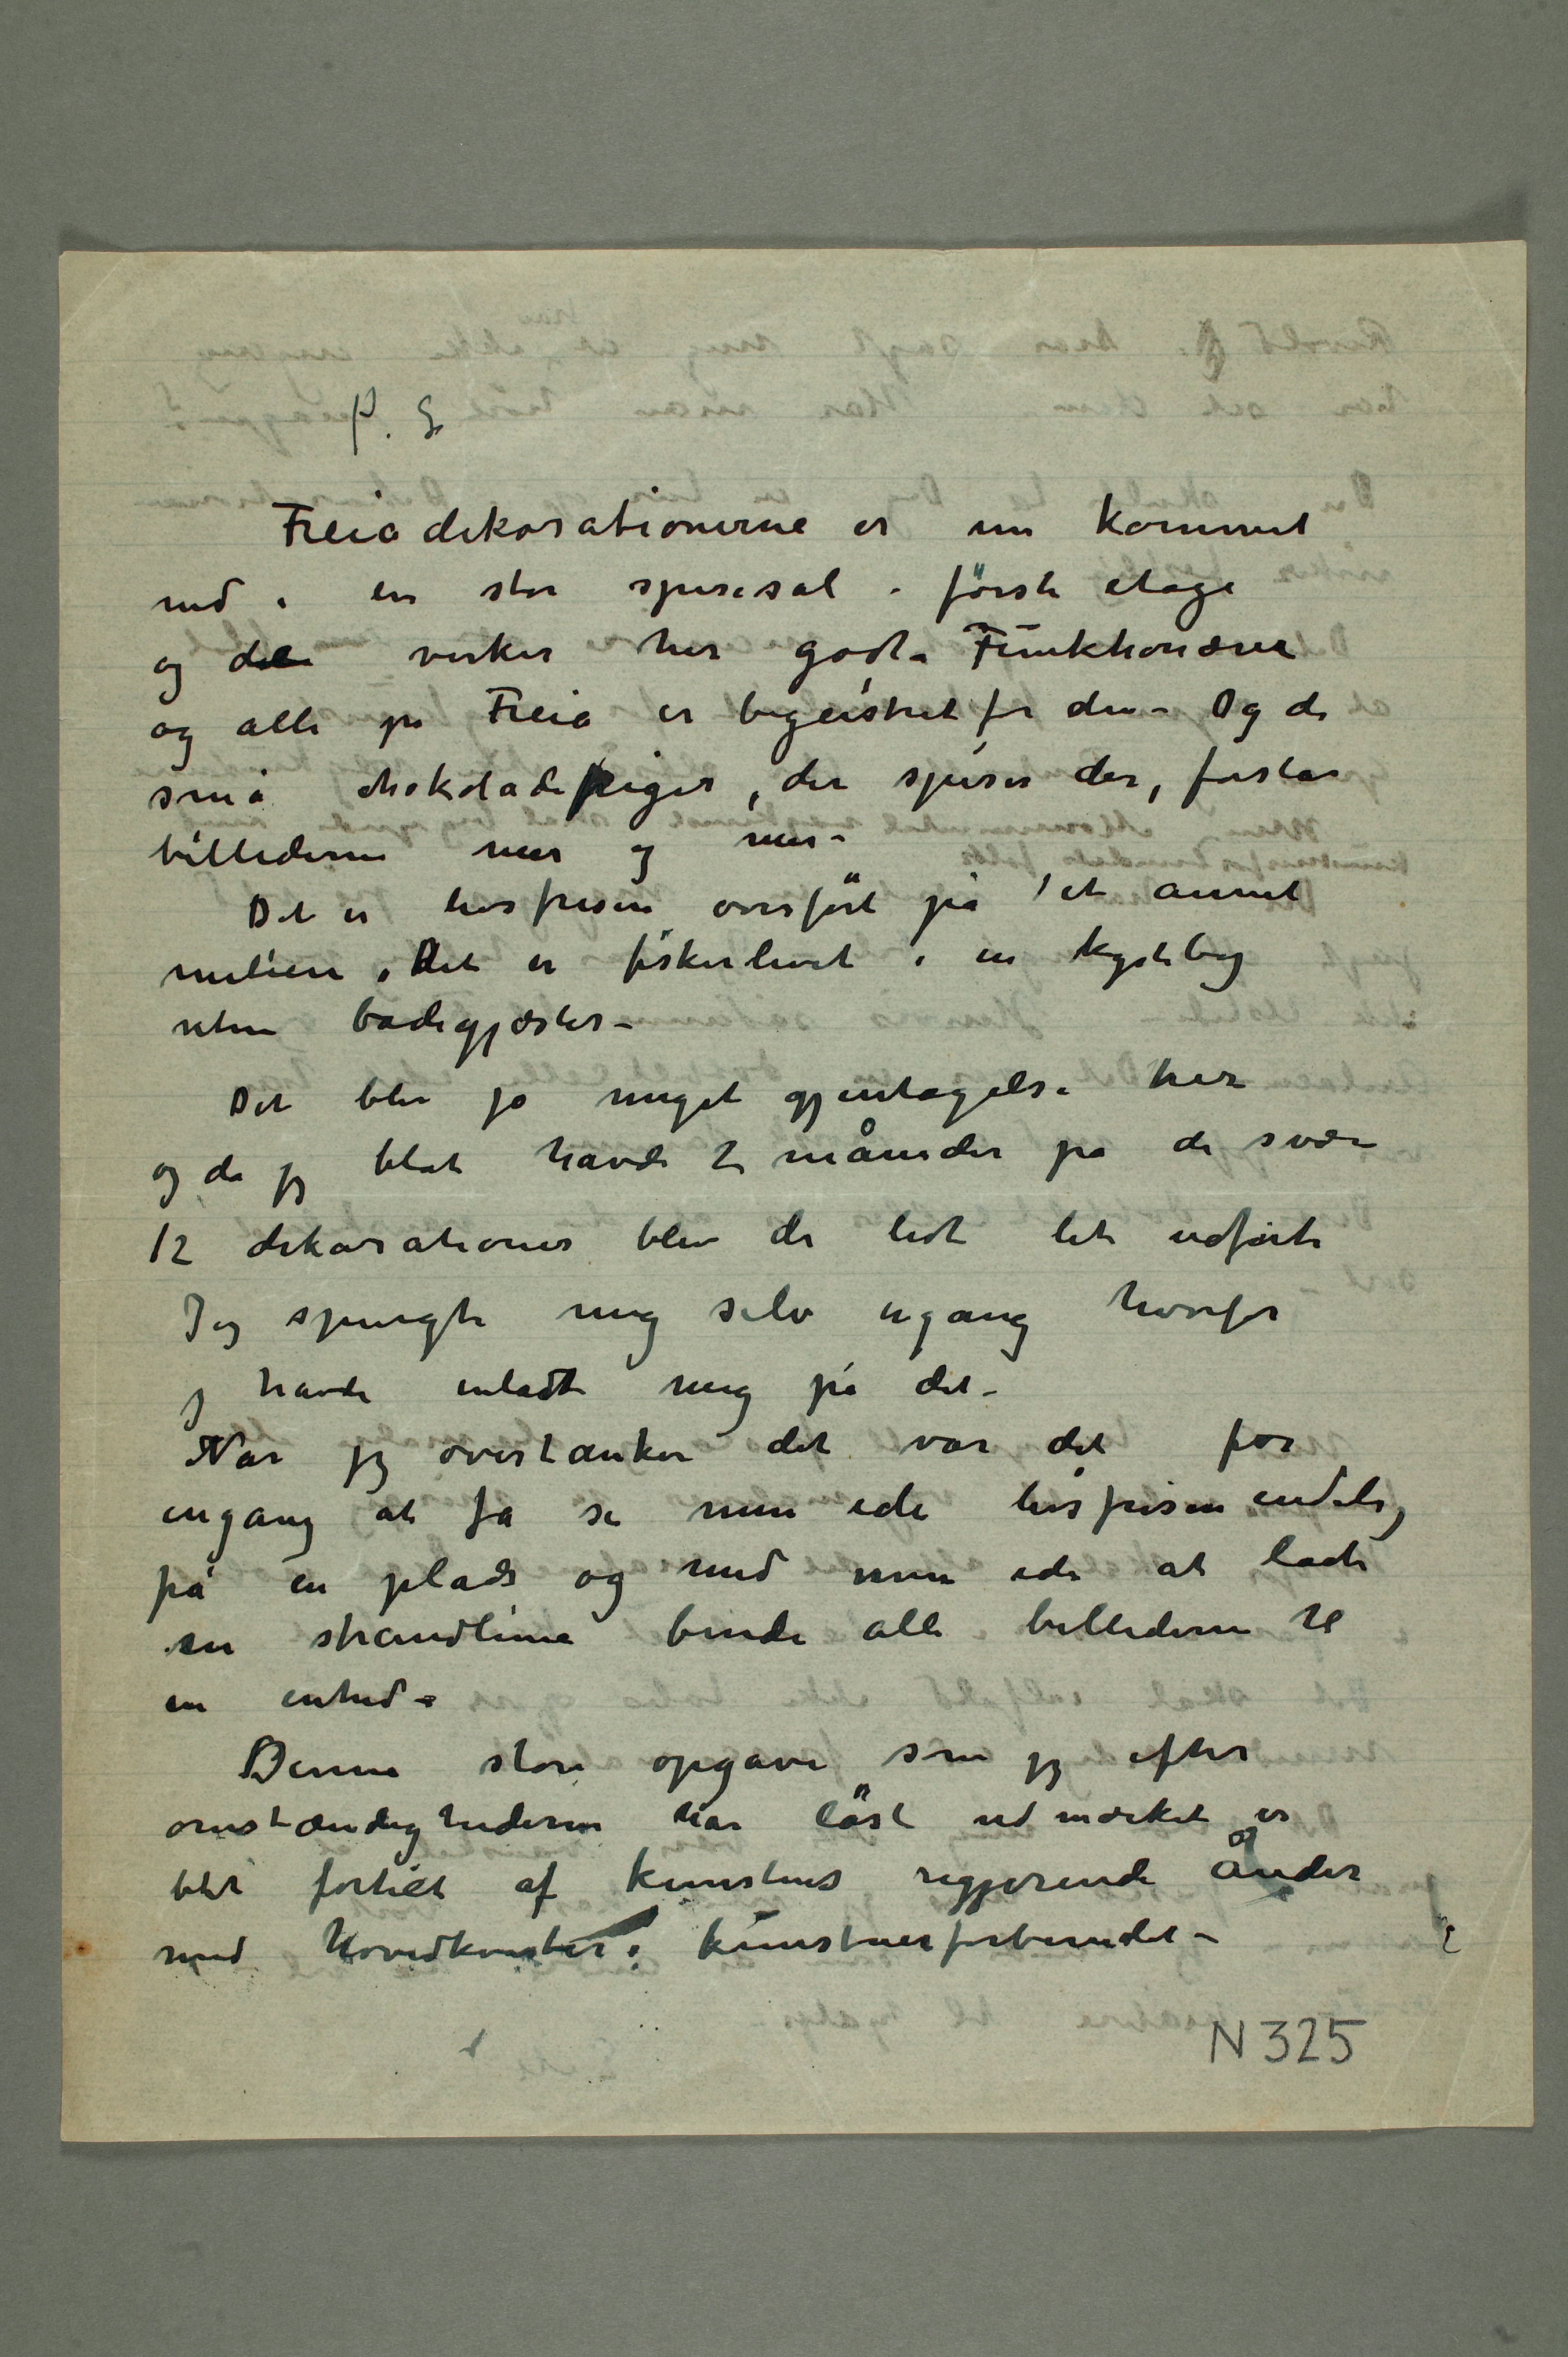 P. S
Freiadekorationerne er nu kommet
ned i en stor spisesal i förste etage
og de virker her godt – Funktionærer
og alle på Freia er begeistret for den – Og de
små chokoladepiger, der spiser der, forstår
billederne mer og mer –
Det er livsfrisen overfört på et annet
milieu, Det er fiskerlivet i en kystby
uten badegjæster –
Det blev jo meget gjentagelse her
og da jeg blot havde 2 måneder på de svære
12 dekorationer blev de lidt let udførte
Jeg spurgte mig selv engang hvorfor
jeg havde inladt mig på det –
Når jeg overtænker det var det for
engang at få se min ide livsfrisen endelig
på en plads og med min ide at lade
en strandlinie binde alle billederne til
en enhed –
Denne store opgave som jeg efter
omstændighederne har löst udmærket er
blet fortiet af kunstens regjerende ånder
med Hovedkvarter i kunstnerforbundet –
N 325